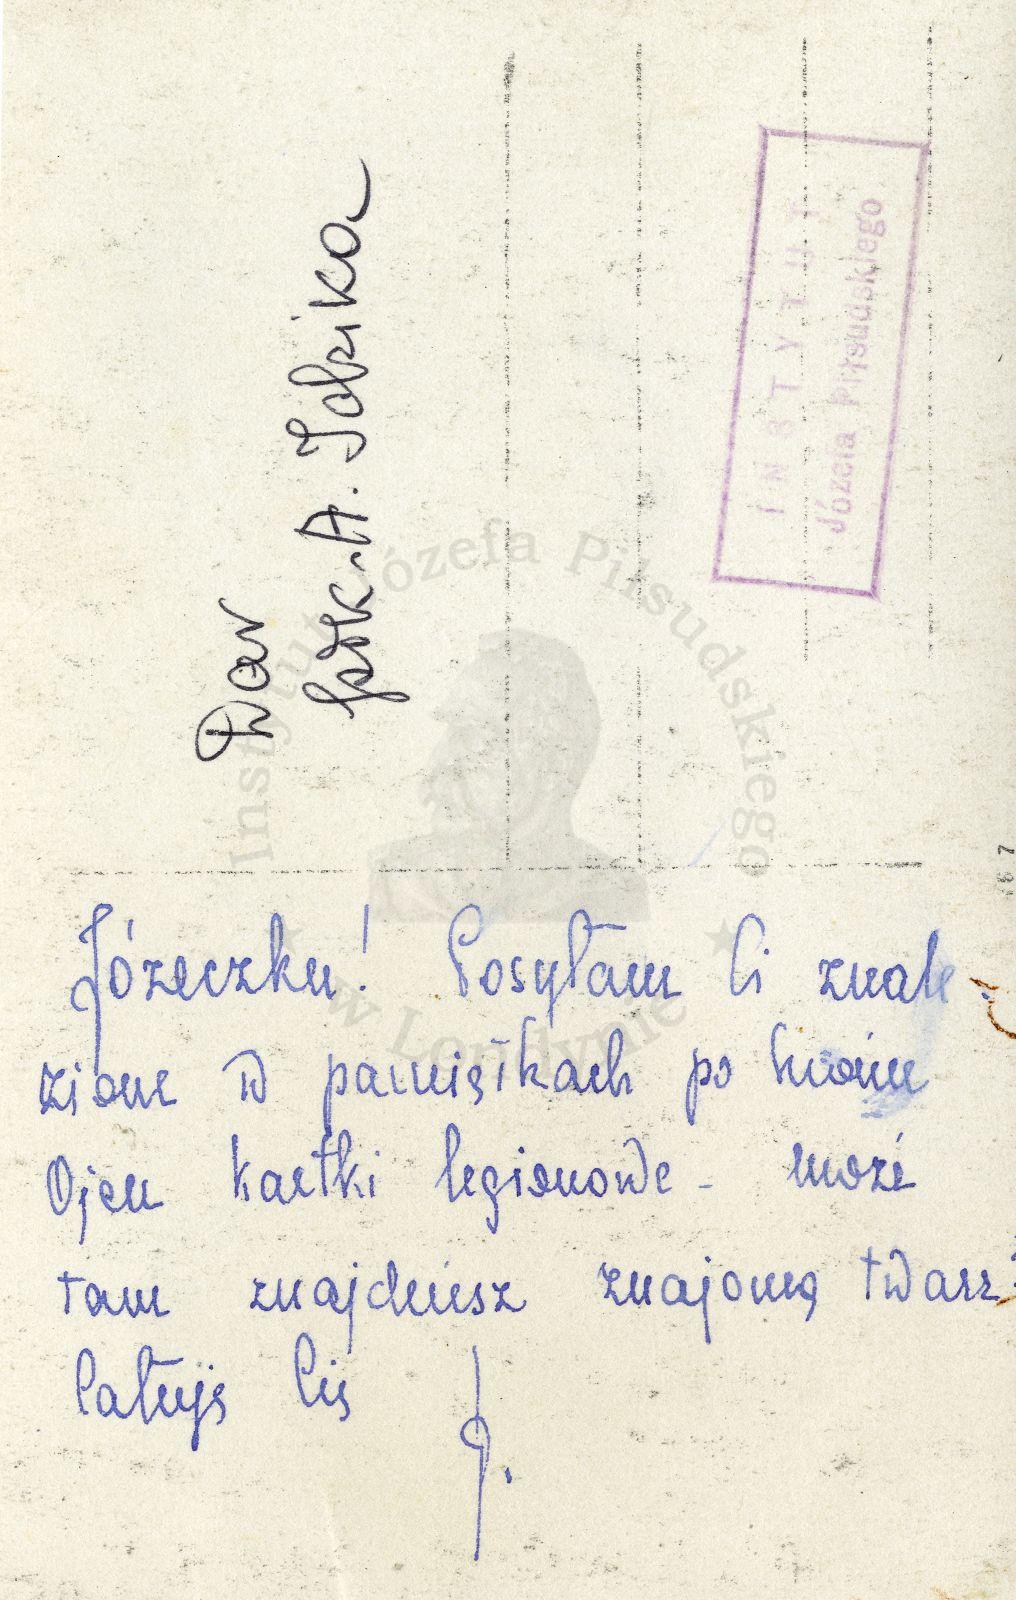 Dar
płk. A. Sobika
INSTYTUT
Józefa Piłsudskiego
Instytut Józefa Piłsudskiego
w Londynie
167
Józeczku! Posyłam Ci znale-
zione w pamiątkach po moim
Ojcu kartki legionowe - może
tam znajdziesz znajomą twarz
Całuję Cię J.